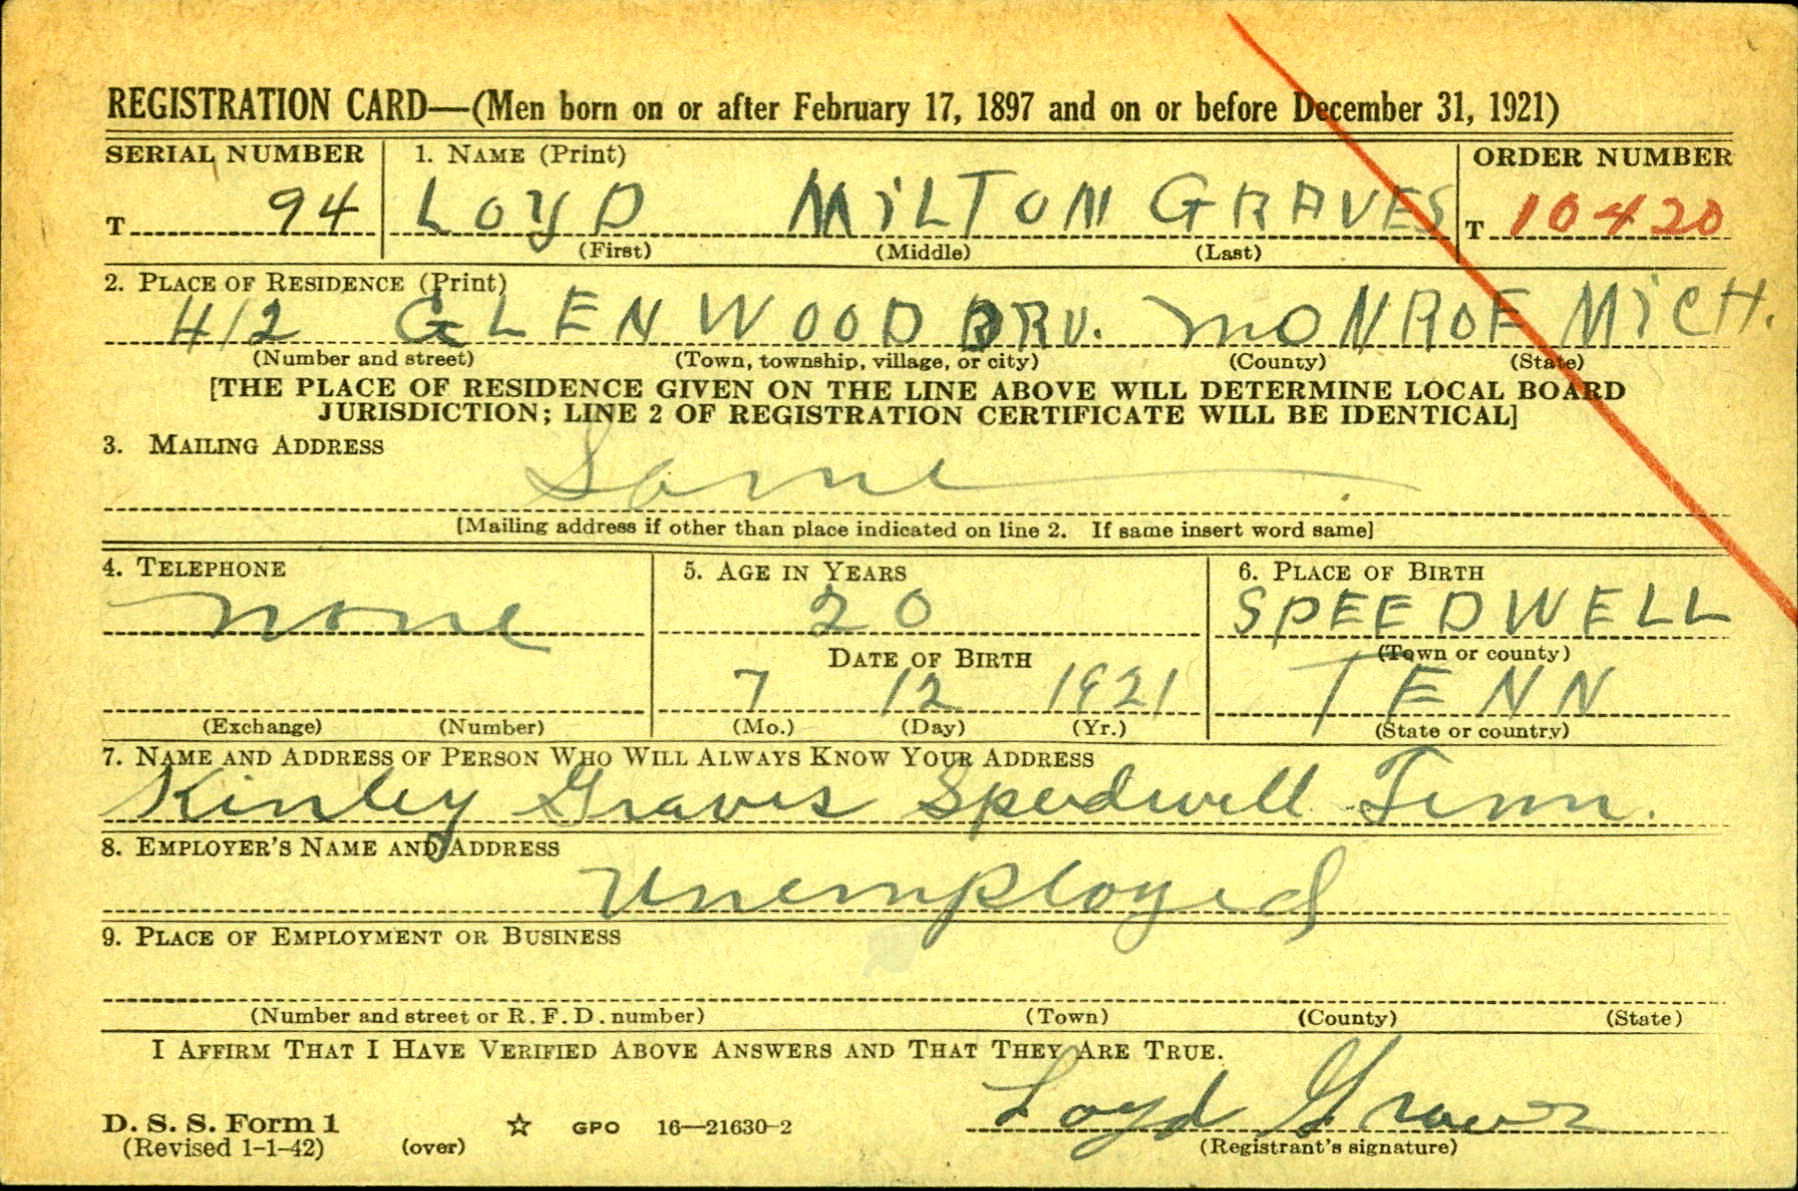 REGISTRATION CARD—(Men born on or after February 17, 1897 and on or before December 31, 1921)
SERIAL NUMBER 1. NAME (Print) ORDER NUMBER
T 94 LOYD MILTON GRAVES T 10420
(First) (Middle) (Last)
2. PLACE OF RESIDENCE (Print)
412 GLENWOOD DRV. MONROE MICH.
(Number and street) (Town, township, village, or city) (County) (State)
[THE PLACE OF RESIDENCE GIVEN ON THE LINE ABOVE WILL DETERMINE LOCAL BOARD
JURISDICTION; LINE 2 OF REGISTRATION CERTIFICATE WILL BE IDENTICAL]
3. MAILING ADDRESS
Same
[Mailing address if other than place indicated on line 2. If same insert word same]
4. TELEPHONE 5. AGE IN YEARS 6. PLACE OF BIRTH
none 20 SPEEDWELL
DATE OF BIRTH (Town or county)
7 12 1921 TENN
(Exchange) (Number) (Mo.) (Day) (Yr.) (State or country)
7. NAME AND ADDRESS OF PERSON WHO WILL ALWAYS KNOW YOUR ADDRESS
Kinley Graves Speedwell Tenn.
8. EMPLOYER'S NAME AND ADDRESS
Unemployed
9. PLACE OF EMPLOYMENT OR BUSINESS
(Number and street or R. F. D. number) (Town) (County) (State)
I AFFIRM THAT I HAVE VERIFIED ABOVE ANSWERS AND THAT THEY ARE TRUE.
Loyd Graves
D. S. S. Form 1 GPO 16—21630-2
(Revised 1-1-42) (over) (Registrant's signature)